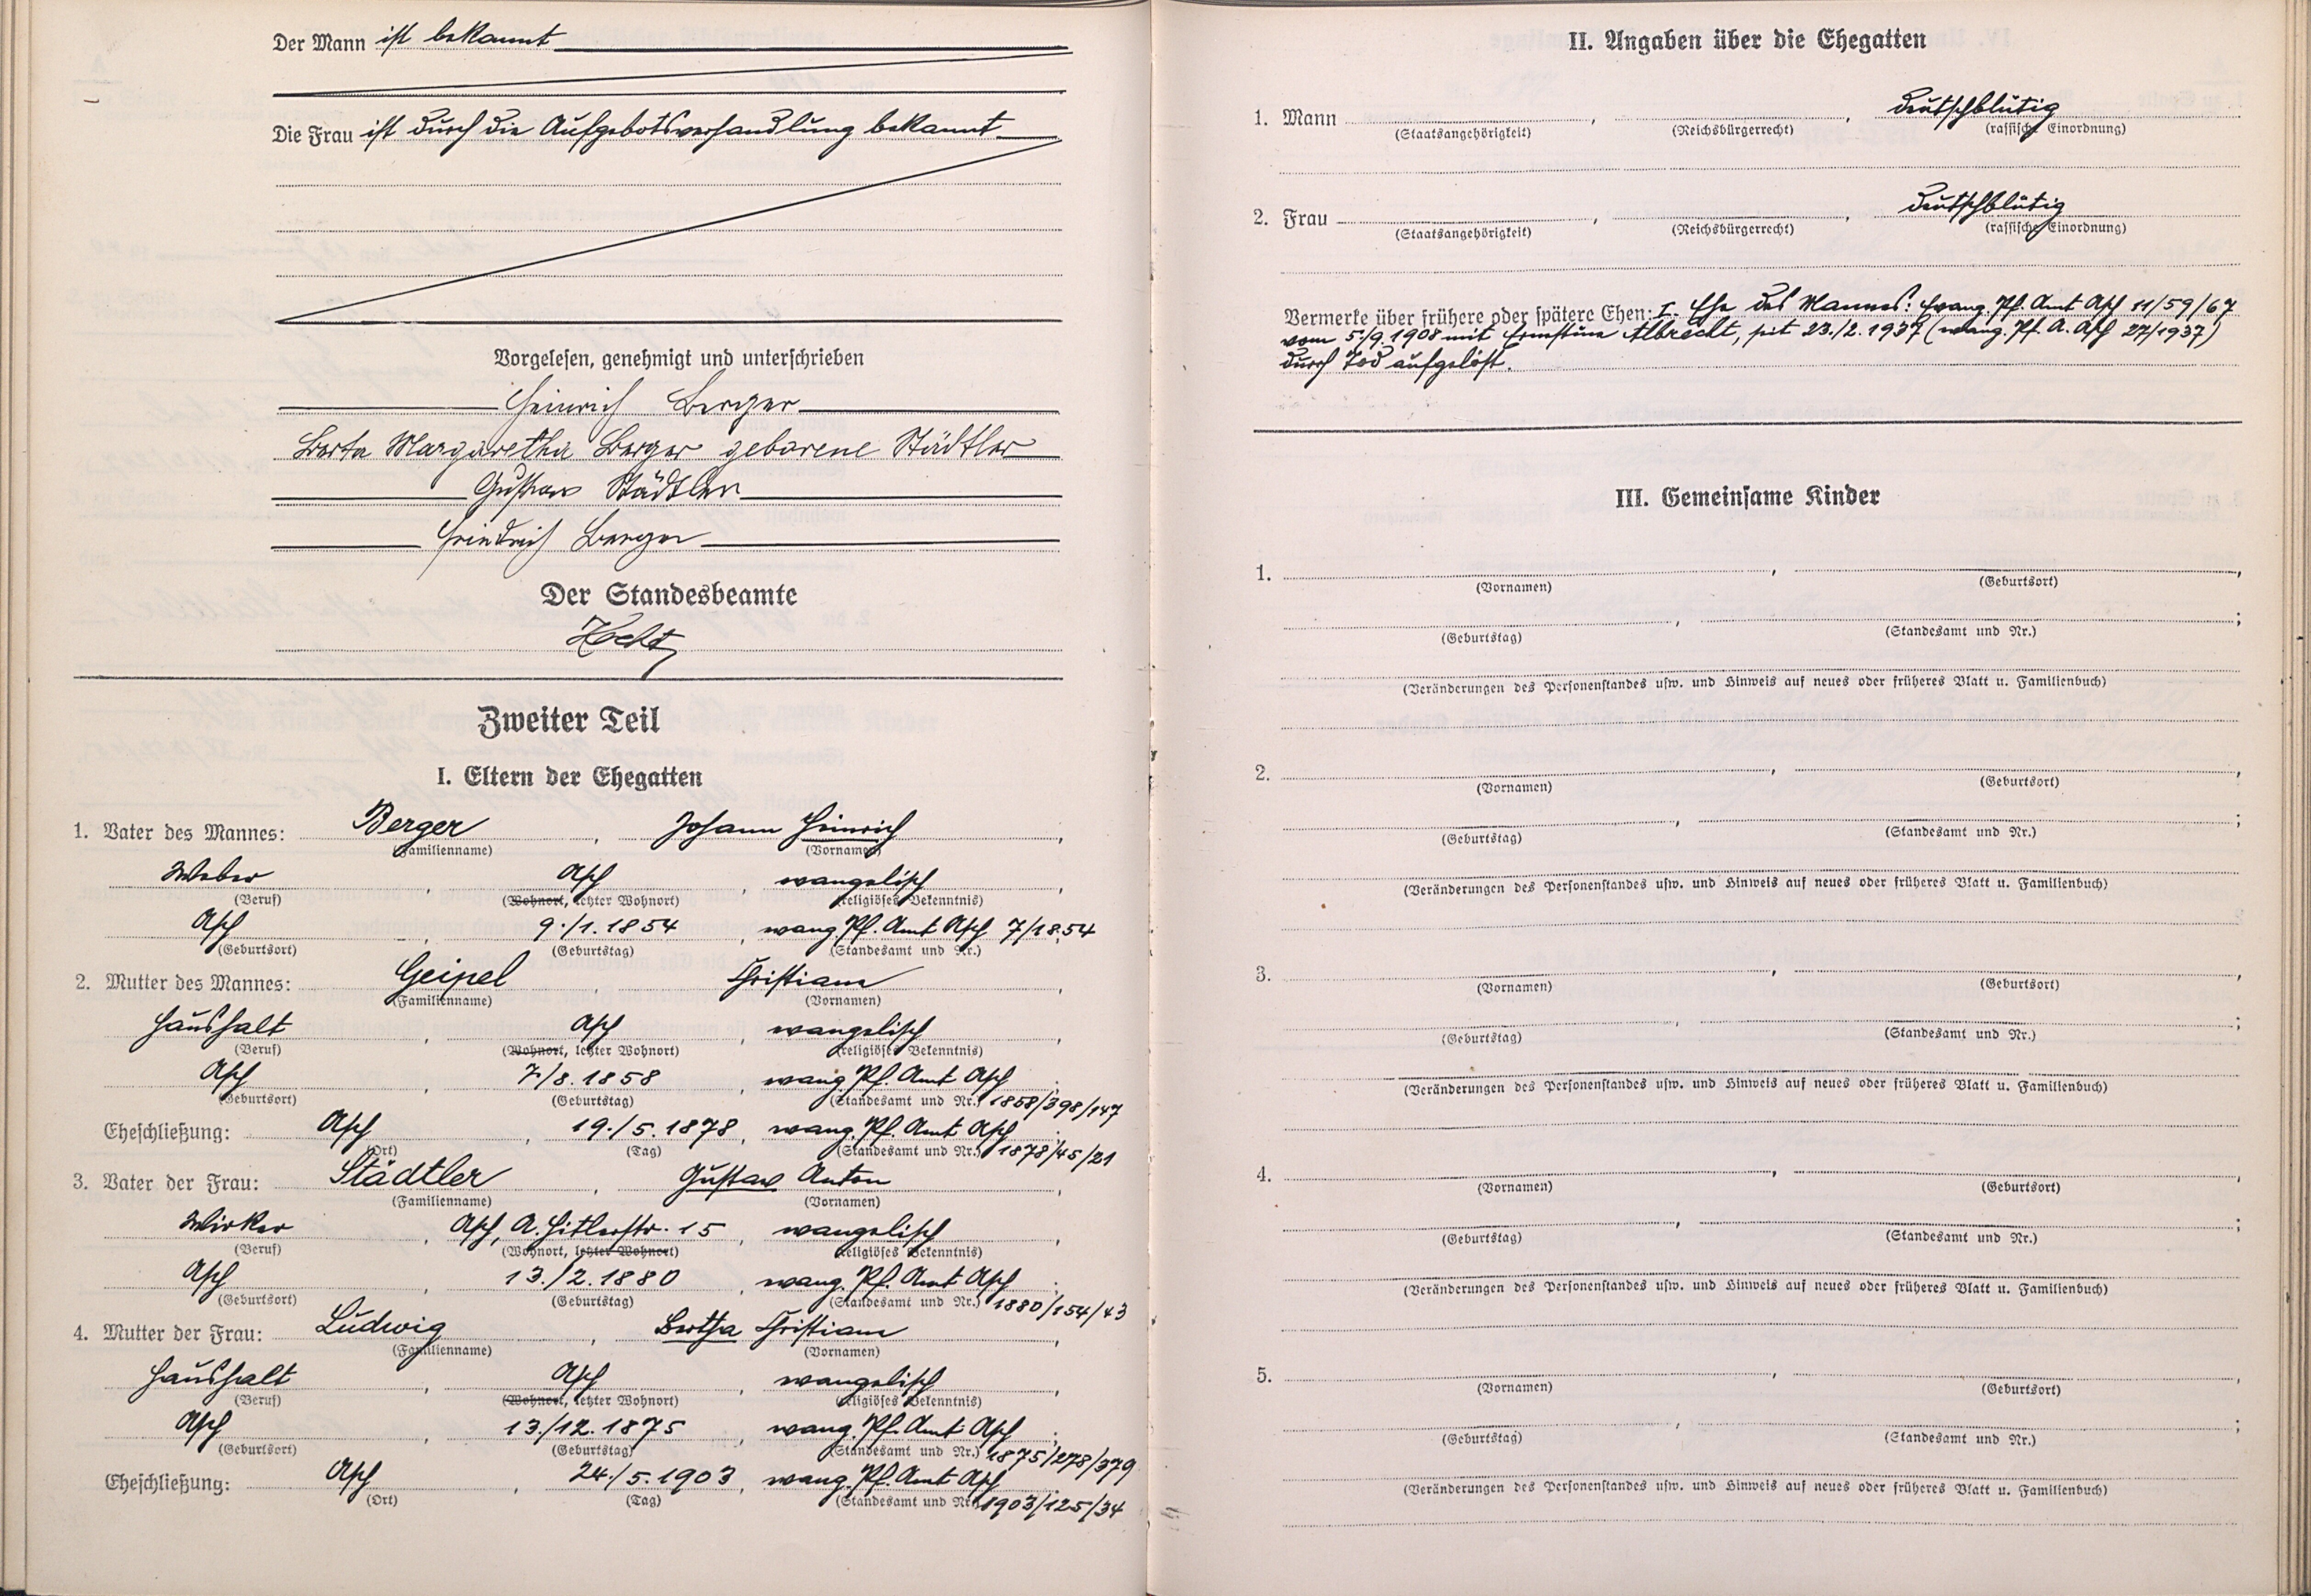 Der Mann ist bekannt
Die Frau ist durch die Aufgebotsverhandlung bekannt.
Vorgelesen, genehmigt und unterschrieben
Heinrich Berger
Berta Margaretha Berger geborene Städtler
Gustav Städtler
Friedrich Berger
Der Standesbeamte
Zweiter Teil
I. Eltern der Ehegatten
1. Vater des Mannes: Berger, Johann Heinrich,
(Familienname) (Vornamen)
Weber, Asch, evangelisch,
(Beruf) (Wohnort, letzter Wohnort) (religiöses Bekenntnis)
Asch, 9./1.1854, evang. Pf. Amt Asch 7/1854
(Geburtsort) (Geburtstag) (Standesamt und Nr.)
2. Mutter des Mannes: Geipel, Christiane,
(Familienname) (Vornamen)
Haushalt, Asch, evangelisch,
(Beruf) (Wohnort, letzter Wohnort) (religiöses Bekenntnis)
Asch, 7/8.1858, evang. Pf. Amt Asch;
(Geburtsort) (Geburtstag) (Standesamt und Nr.) 1858/398/147
Eheschließung: Asch, 19./5.1878, evang. Pf. Amt Asch;
(Ort) (Tag) (Standesamt und Nr.) 1878/45/21
3. Vater der Frau: Städtler, Gustav Anton,
(Familienname) (Vornamen)
Wirker, Asch, A. Hitlerstr. 15, evangelisch,
(Beruf) (Wohnort, letzter Wohnort) (religiöses Bekenntnis)
Asch, 13./2.1880, evang. Pf. Amt Asch;
(Geburtsort) (Geburtstag) (Standesamt und Nr.) 1880/154/43
4. Mutter der Frau: Ludwig, Bertha Christiane,
(Familienname) (Vornamen)
Haushalt, Asch, evangelisch,
(Beruf) (Wohnort, letzter Wohnort) (religiöses Bekenntnis)
Asch, 13./12.1875, evang. Pf. Amt Asch;
(Geburtsort) (Geburtstag) (Standesamt und Nr.) 1875/278/379
Eheschließung: Asch, 24./5.1903, evang. Pf. Amt Asch
(Ort) (Tag) (Standesamt und Nr.) 1903/125/34
II. Angaben über die Ehegatten
1. Mann , , deutschblütig
(Staatsangehörigkeit) (Reichsbürgerrecht) (rassische Einordnung)
2. Frau , , deutschblütig
(Staatsangehörigkeit) (Reichsbürgerrecht) (rassische Einordnung)
Vermerke über frühere oder spätere Ehen: I. Ehe des Mannes: Evang. Pf. Amt Asch 11/59/67
vom 5./9.1908 mit Ernestine Albrecht, seit 23./2.1937 (evang. Pf. A. Asch 27/1937)
durch Tod aufgelöst.
III. Gemeinsame Kinder
1. , ,
(Vornamen) (Geburtsort)
, ;
(Geburtstag) (Standesamt und Nr.)
(Veränderungen des Personenstandes usw. und Hinweis auf neues oder früheres Blatt u. Familienbuch)
2. , ,
(Vornamen) (Geburtsort)
, ;
(Geburtstag) (Standesamt und Nr.)
(Veränderungen des Personenstandes usw. und Hinweis auf neues oder früheres Blatt u. Familienbuch)
3. , ,
(Vornamen) (Geburtsort)
, ;
(Geburtstag) (Standesamt und Nr.)
(Veränderungen des Personenstandes usw. und Hinweis auf neues oder früheres Blatt u. Familienbuch)
4. , ,
(Vornamen) (Geburtsort)
, ;
(Geburtstag) (Standesamt und Nr.)
(Veränderungen des Personenstandes usw. und Hinweis auf neues oder früheres Blatt u. Familienbuch)
5. , ,
(Vornamen) (Geburtsort)
, ;
(Geburtstag) (Standesamt und Nr.)
(Veränderungen des Personenstandes usw. und Hinweis auf neues oder früheres Blatt u. Familienbuch)